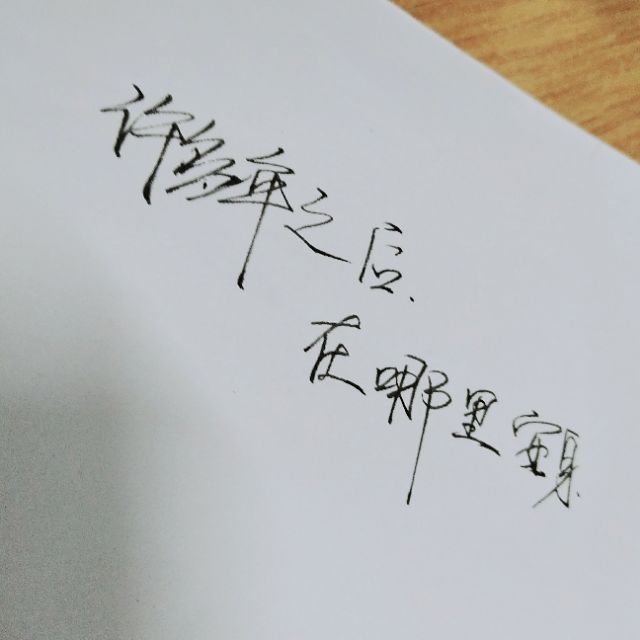 许多年之后.
在哪里